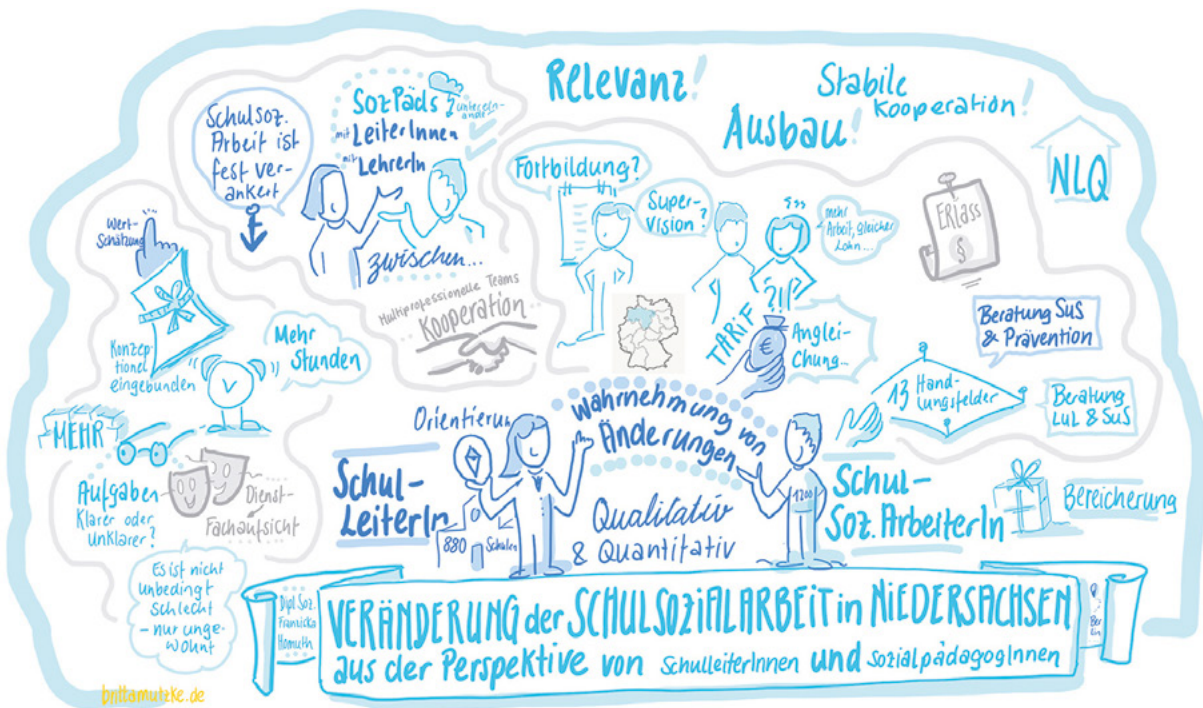 Relevanz!
Stabile
Kooperation!
Ausbau!
NLQ
Schulsoz.
Arbeit ist
fest ver-
ankert
SozPäds
unterein-
ander
mit LeiterInnen
mit LehrerIn
zwischen...
Multiprofessionelle Teams
Kooperation
Fortbildung?
Super-
Vision?
mehr
Arbeit, gleicher
Lohn...
?!!
TARIF
€
Anglei-
chung...
ERlass
§
Beratung SuS
& Prävention
13 Hand-
lungsfelder
Beratung
LuL & SuS
Wert-
Schätzung
Konzep-
tionel
eingebunden
Mehr
Stunden
MEHR
Aufgaben
Klarer oder
unklarer?
Dienst-
Fachaufsicht
Es ist nicht
unbedingt
schlecht
- nur unge-
wohnt
Orientierun
Schul-
LeiterIn
880 Schulen
Wahrnehmung von
Änderungen
Qualitativ
& Quantitativ
1200
Schul-
Soz.ArbeiterIn
Bereicherung
Dipl. Soz.
Franziska
Homuth
VERÄNDERUNG der SCHULSOZIALARBEIT in NIEDERSACHSEN
aus der Perspektive von SchulleiterInnen und SozialpädagogInnen
Ber
lin
brittamutzke.de